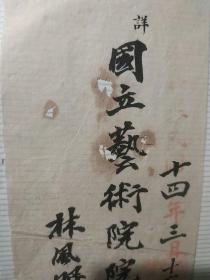 十四年三月十
詳
國立藝術院院
林風